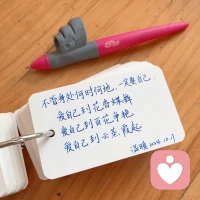 不管身处何时何地,一定爱自己
爱自己到花香蝶舞
爱自己到百花争艳
爱自己到云蒸霞起